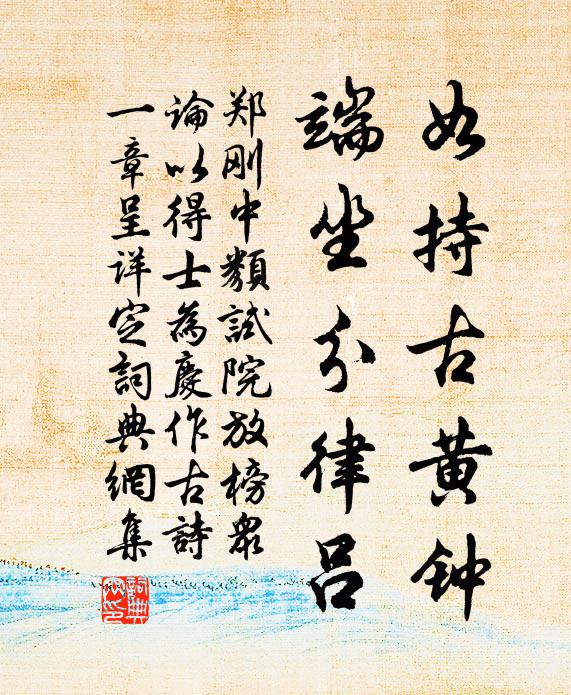 如持古黄钟
端坐分律吕
郑刚中類試院放榜衆
論以得士為慶作古詩
一章呈详定詞典網集